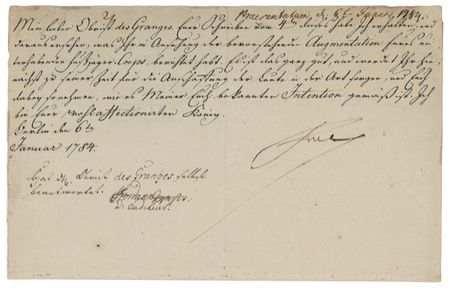 Praesentatum, d. 6t. Janry. 1784.
Mein lieber Obrist des Granges. Euer Schreiben vom 4ten dieses habe Ich erhalten, und
daraus ersehen, was Ihr in Ansehung der bevorstehenden Augmentation Eures an-
Corps, berichtet habt. Es ist das ganz gut, und werdet Ihr
zu seiner Zeit für die Anschaffung der Leute in der Art sorgen, und Euch
dabey so nehmen, wie es Meiner Euch bekannten Intention gemäß ist. Ich
bin Euer wohl affectionirter König.
Berlin den 6ten
Januar 1784.
Fch
des Granges selbst
beantwortet.